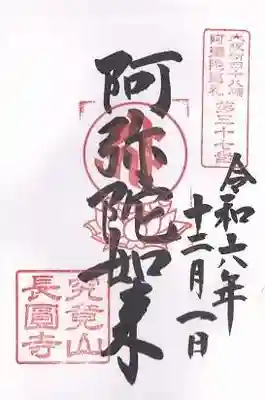 大阪新四十八願
阿彌陀巡礼
第三十七番
令和六年
十二月一日
阿弥陀如来
究竟山
長圓寺